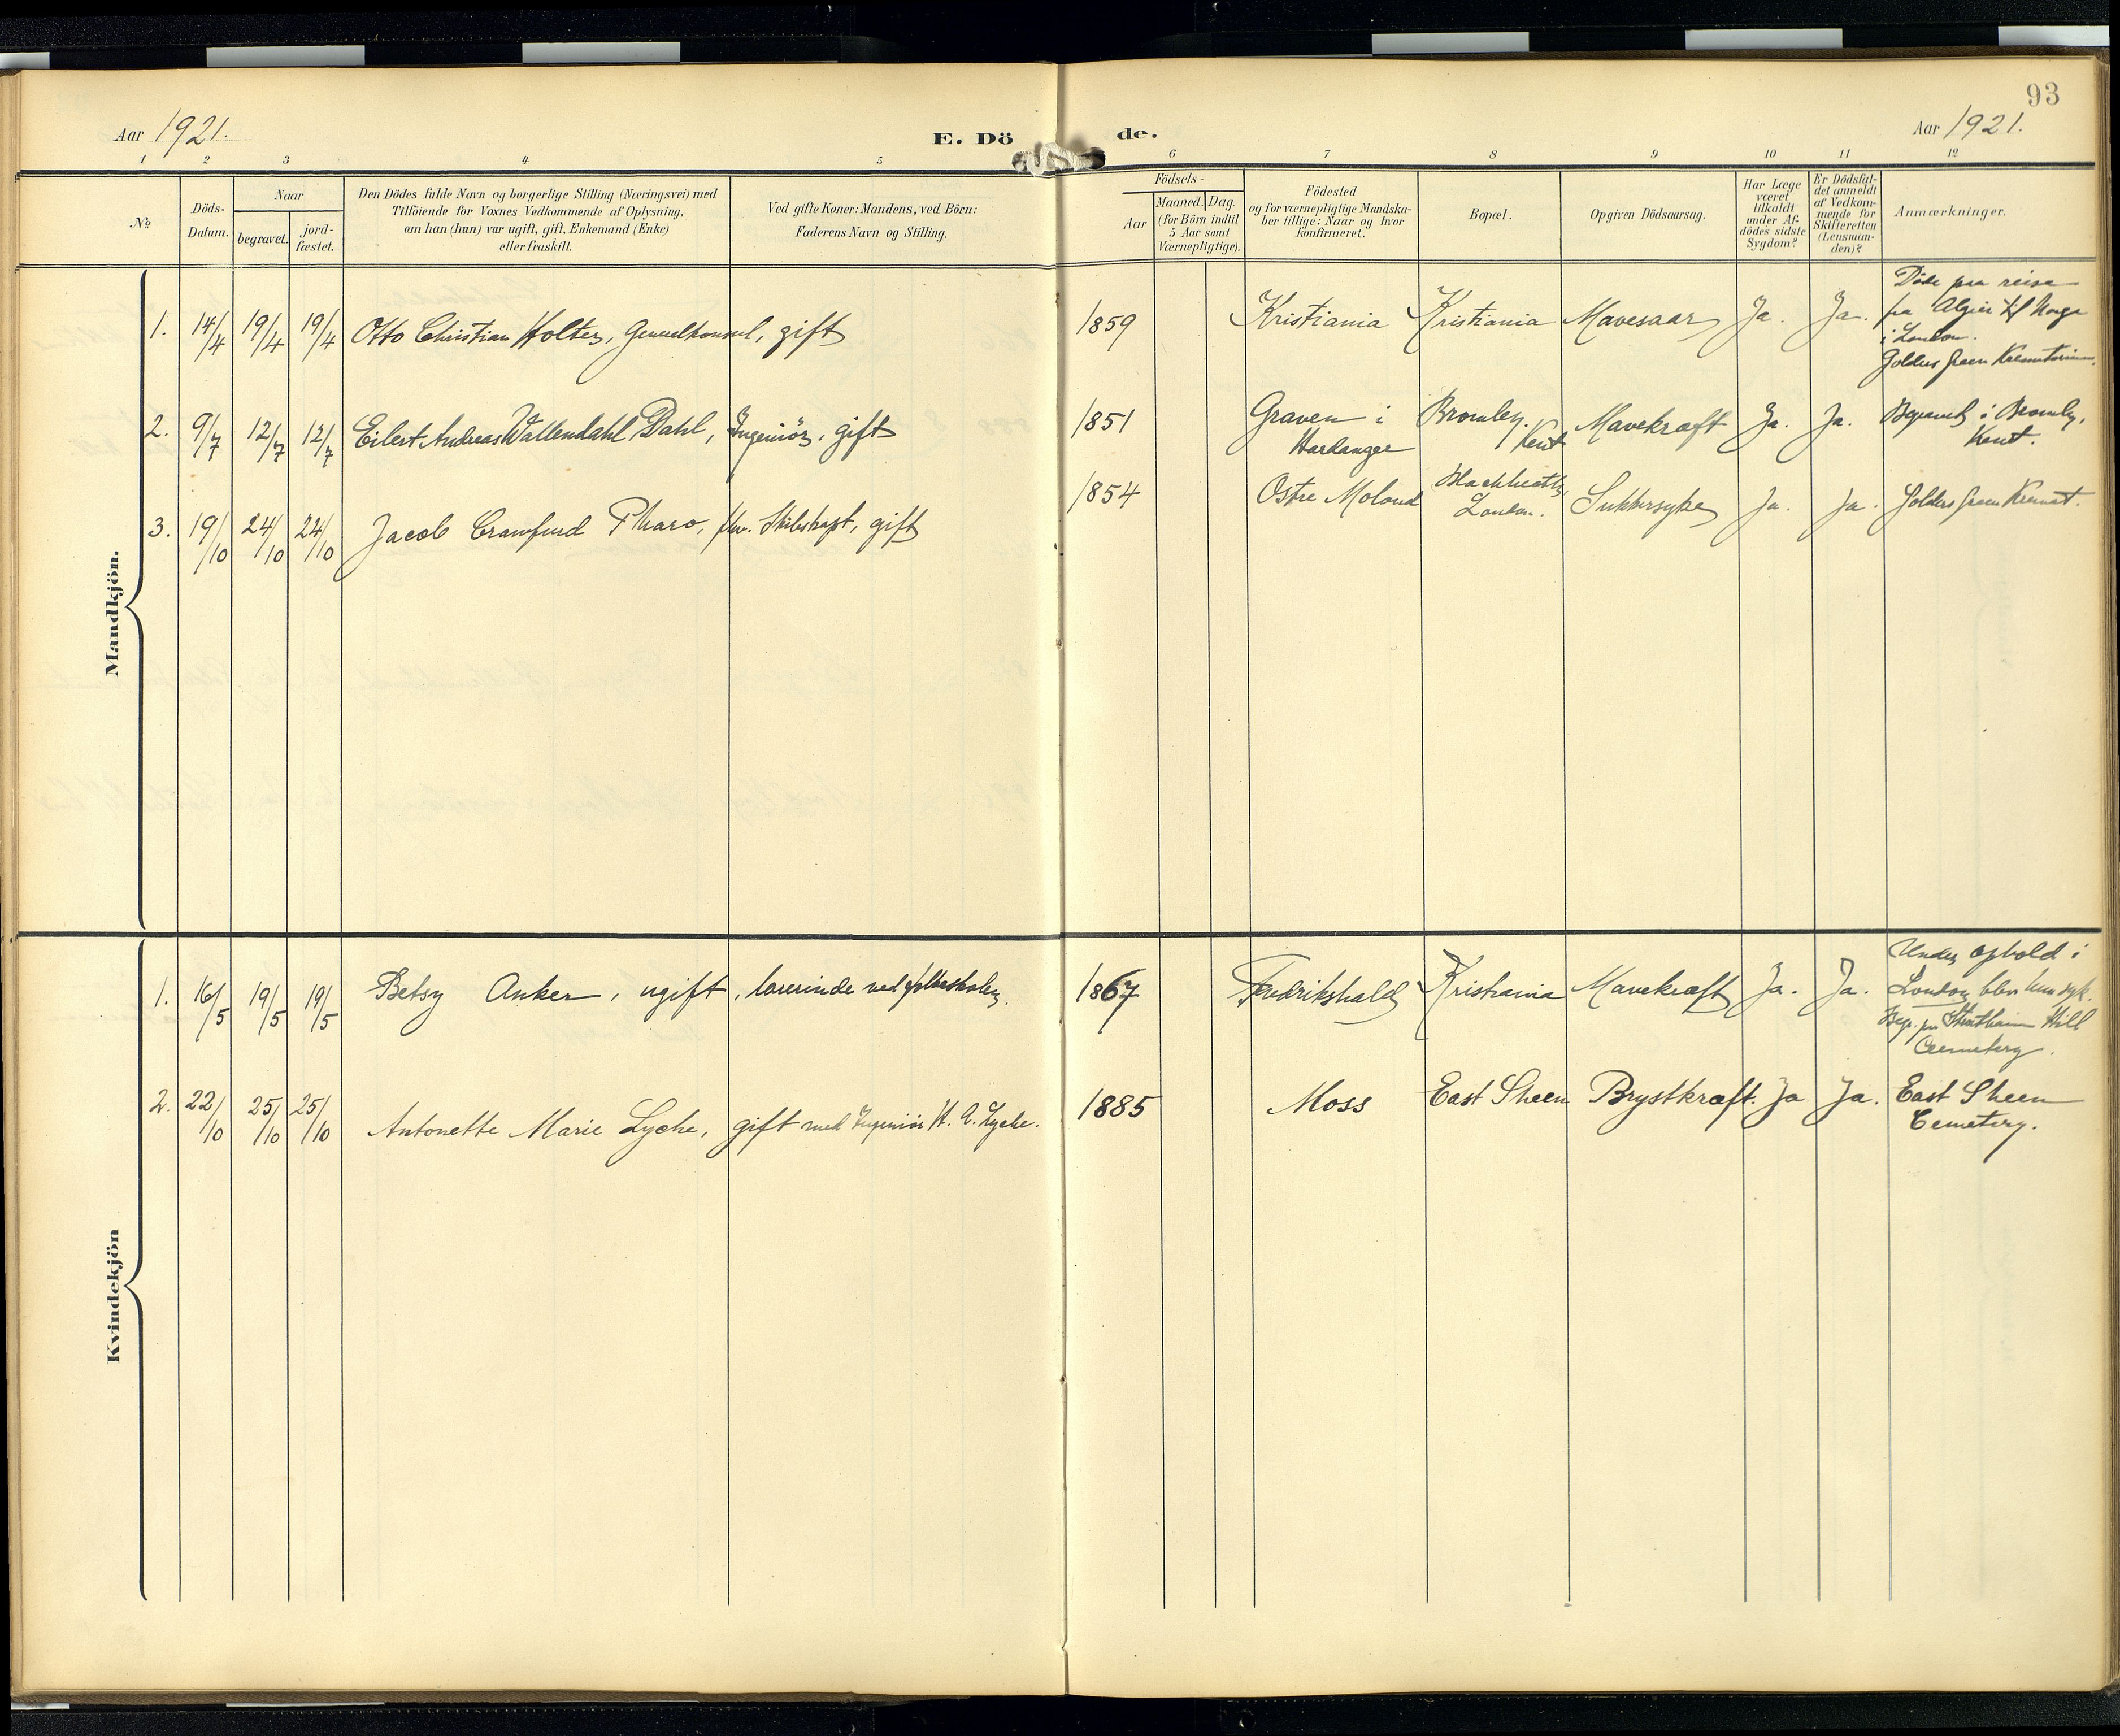 93
Aar 1921.
E. Dö de.
Aar 1921.
1 2 3 4 5 6 7 8 9 10 11 12
No
Döds-
Datum.
Naar
begravet.
jord-
fæstet.
Den Dödes fulde Navn og borgerlige Stilling (Næringsvei) med
Tilföiende for Voxnes Vedkommende af Oplysning,
om han (hun) var ugift, gift, Enkemand (Enke)
eller fraskilt.
Ved gifte Koner: Mandens, ved Börn:
Faderens Navn og Stilling.
Födsels-
Aar
Maaned. Dag.
(for Börn indtil
5 Aar samt
Værnepligtige).
Födested
og for værnepligtige Mandska-
ber tillige: Naar og hvor
konfirmeret.
Bopæl.
Opgiven Dödsaarsag.
Har Læge
været
tilkaldt
under Af-
dödes sidste
Sygdom?
Er Dödsfal-
det anmeldt
af Vedkom-
mende for
Skifteretten
(Lensman-
den)?
Anmærkninger.
Mandkjön.
1. 14/4 19/4 19/4 Otto Christian Holter, Generalkonsul, gift 1859 Kristiania Kristiania Mavesaar Ja. Ja.
Döde paa reise
fra Algier til Norge
i London.
Golders Green Krematorium.
2. 9/7 12/7 12/7 Eilert Andreas Wallendahl Dahl, Ingeniör, gift 1851 Graven i
Hardanger
Bromley.
Kent
Mavekræft Ja. Ja. Begravet i Bromley,
Kent.
3. 19/10 24/10 24/10 Jacob Crawfurd Tharo, fhv. Skibskapt, gift 1854 Østre Moland Blackheath
London.
Sukkersyke Ja. Ja. Golders Green Kremat.
Kvindekjön
1. 16/5 19/5 19/5 Betsy Anker, ugift, lærerinde ved folkeskolen. 1867 Fredrikshald Kristiania Mavekræft Ja. Ja.
Under ophold i
London blev hun syk.
Begr. paa Streatham Hill
Cemetery.
2. 22/10 25/10 25/10 Antonette Marie Lyche, gift med Ingeniör H. A. Lyche. 1885 Moss East Sheen Brystkræft. Ja Ja. East Sheen
Cemetery.